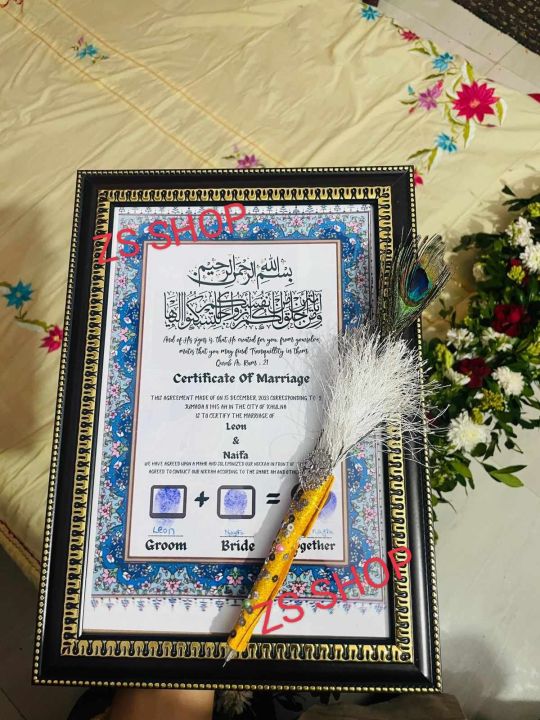 ZS SHOP
بسم الله الرحمن الرحيم
And of His signs is that He created for you, from yourselves,
mates that you may find Tranquillity in them
Quran Ar Rum : 21
Certificate Of Marriage
THIS AGREEMENT MADE OF ON 15 DECEMBER, 2023 CORRESPONDING TO
IN THE CITY OF KHULNA
IS TO CERTIFY THE MARRIAGE OF
Leon
&
Naifa
WE HAVE AGREED UPON A MAHR AND SOLEMNIZED OUR NIKKAH IN FRONT OF
AGREED TO CONDUCT OUR NIKKAH ACCORDING TO THE
+ =
Leon Naifa
Groom Bride Together
ZS SHOP